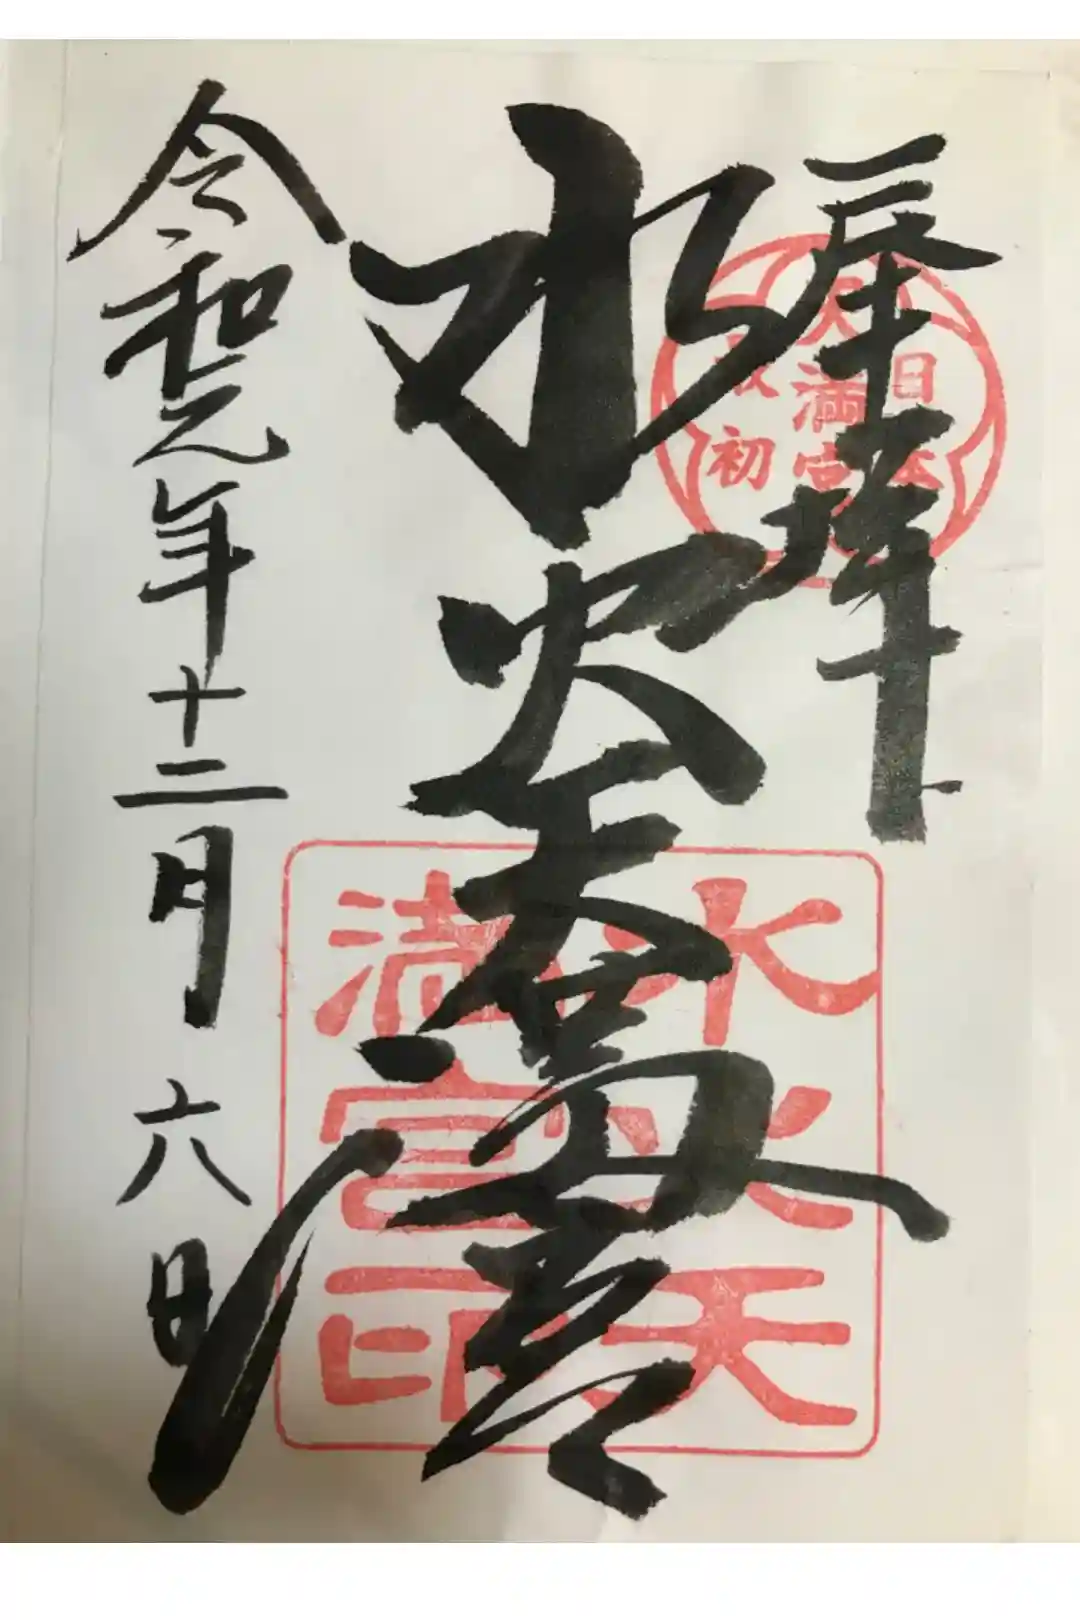 日本
天満宮
最初
水火天満宮
水火天
満宮印
令和元年十二月六日